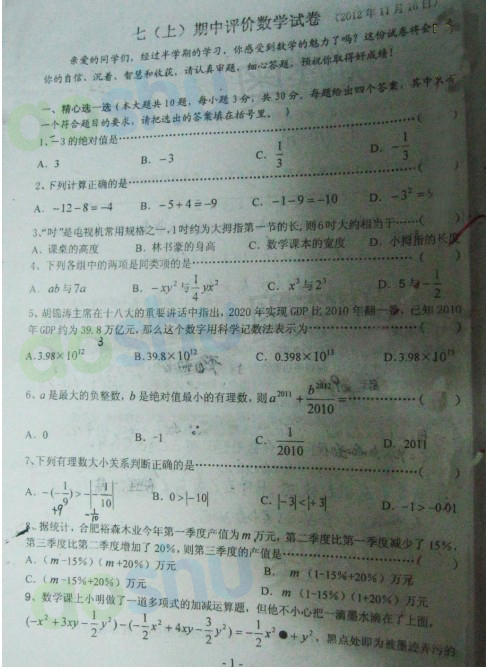 七（上）期中评价数学试卷 （2012年11月16日）
亲爱的同学们，经过半学期的学习，你感受到数学的魅力了吗？这份试卷将会
你的自信、沉着、智慧和收获，请认真审题，细心答题，预祝你取得好成绩！
一、精心选一选（本大题共10题，每小题3分，共30分，每题给出四个答案，其中只有
一个符合题目的要求，请把选出的答案填在括号里。）
1、-3的绝对值是…………（ ）
A．3 B．-3 C．1/3 D．-1/3
2、下列计算正确的是…………（ ）
A．-12-8=-4 B．-5+4=-9 C．-1-9=-10 D．-3²=9
3、“吋”是电视机常用规格之一，1吋约为大拇指第一节的长，则6吋大约相当于……（ ）
A．课桌的高度 B．林书豪的身高 C．数学课本的宽度 D．小拇指的长度
4、下列各组中的两项是同类项的是…………（ ）
A．ab与7a B．-xy²与1/4yx² C．x³与2³ D．5与-1/2
5、胡锦涛主席在十八大的重要讲话中指出，2020年实现GDP比2010年翻一番，已知2010
年GDP约为39.8万亿元，那么这个数字用科学记数法表示为…………（ ）
A.3.98×10¹² B.39.8×10¹² C．0.398×10¹³ D.3.98×10¹³
6、a是最大的负整数，b是绝对值最小的有理数，则a²⁰¹¹+b²⁰¹²/2010=…………（ ）
A．0 B．-1 C．1/2010 D．2011
7、下列有理数大小关系判断正确的是…………（ ）
A．-(-1/9)>-|-1/10| B．0>|-10| C．|-3|<|+3| D．-1>-0.01
+9 -1/10
8、据统计，合肥裕森木业今年第一季度产值为m万元，第二季度比第一季度减少了15%，
第三季度比第二季度增加了20%，则第三季度的产值是…………（ ）
A．（m-15%）（m+20%）万元 B．m（1-15%+20%）万元
C．（m-15%+20%）万元 D．m（1-15%）（1+20%）万元
9、数学课上小明做了一道多项式的加减运算题，但他不小心把一滴墨水滴在了上面，
(-x²+3xy-1/2y²)-(-1/2x²+4xy-3/2y²)=-1/2x²●+y²，黑点处即为被墨迹弄污的
- 1 -